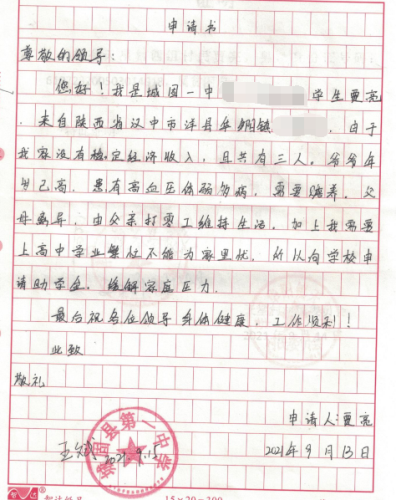 申请书
尊敬的领导:
您好!我是城固一中 学生贾亮
,来自陕西省汉中市洋县 镇 ,由于
我家没有稳定经济收入,且共有三人。爷爷年
岁已高,患有高血压体弱多病,需要赡养,父
母离异,由父亲打零工维持生活,加上我需要
上高中学业繁忙不能为家里忧,所以向学校申
请助学金,缓解家庭压力。
最后祝各位领导身体健康,工作顺利!
此致
敬礼
申请人:贾亮
2021年9月13日
城固县第一中学
15×20=300